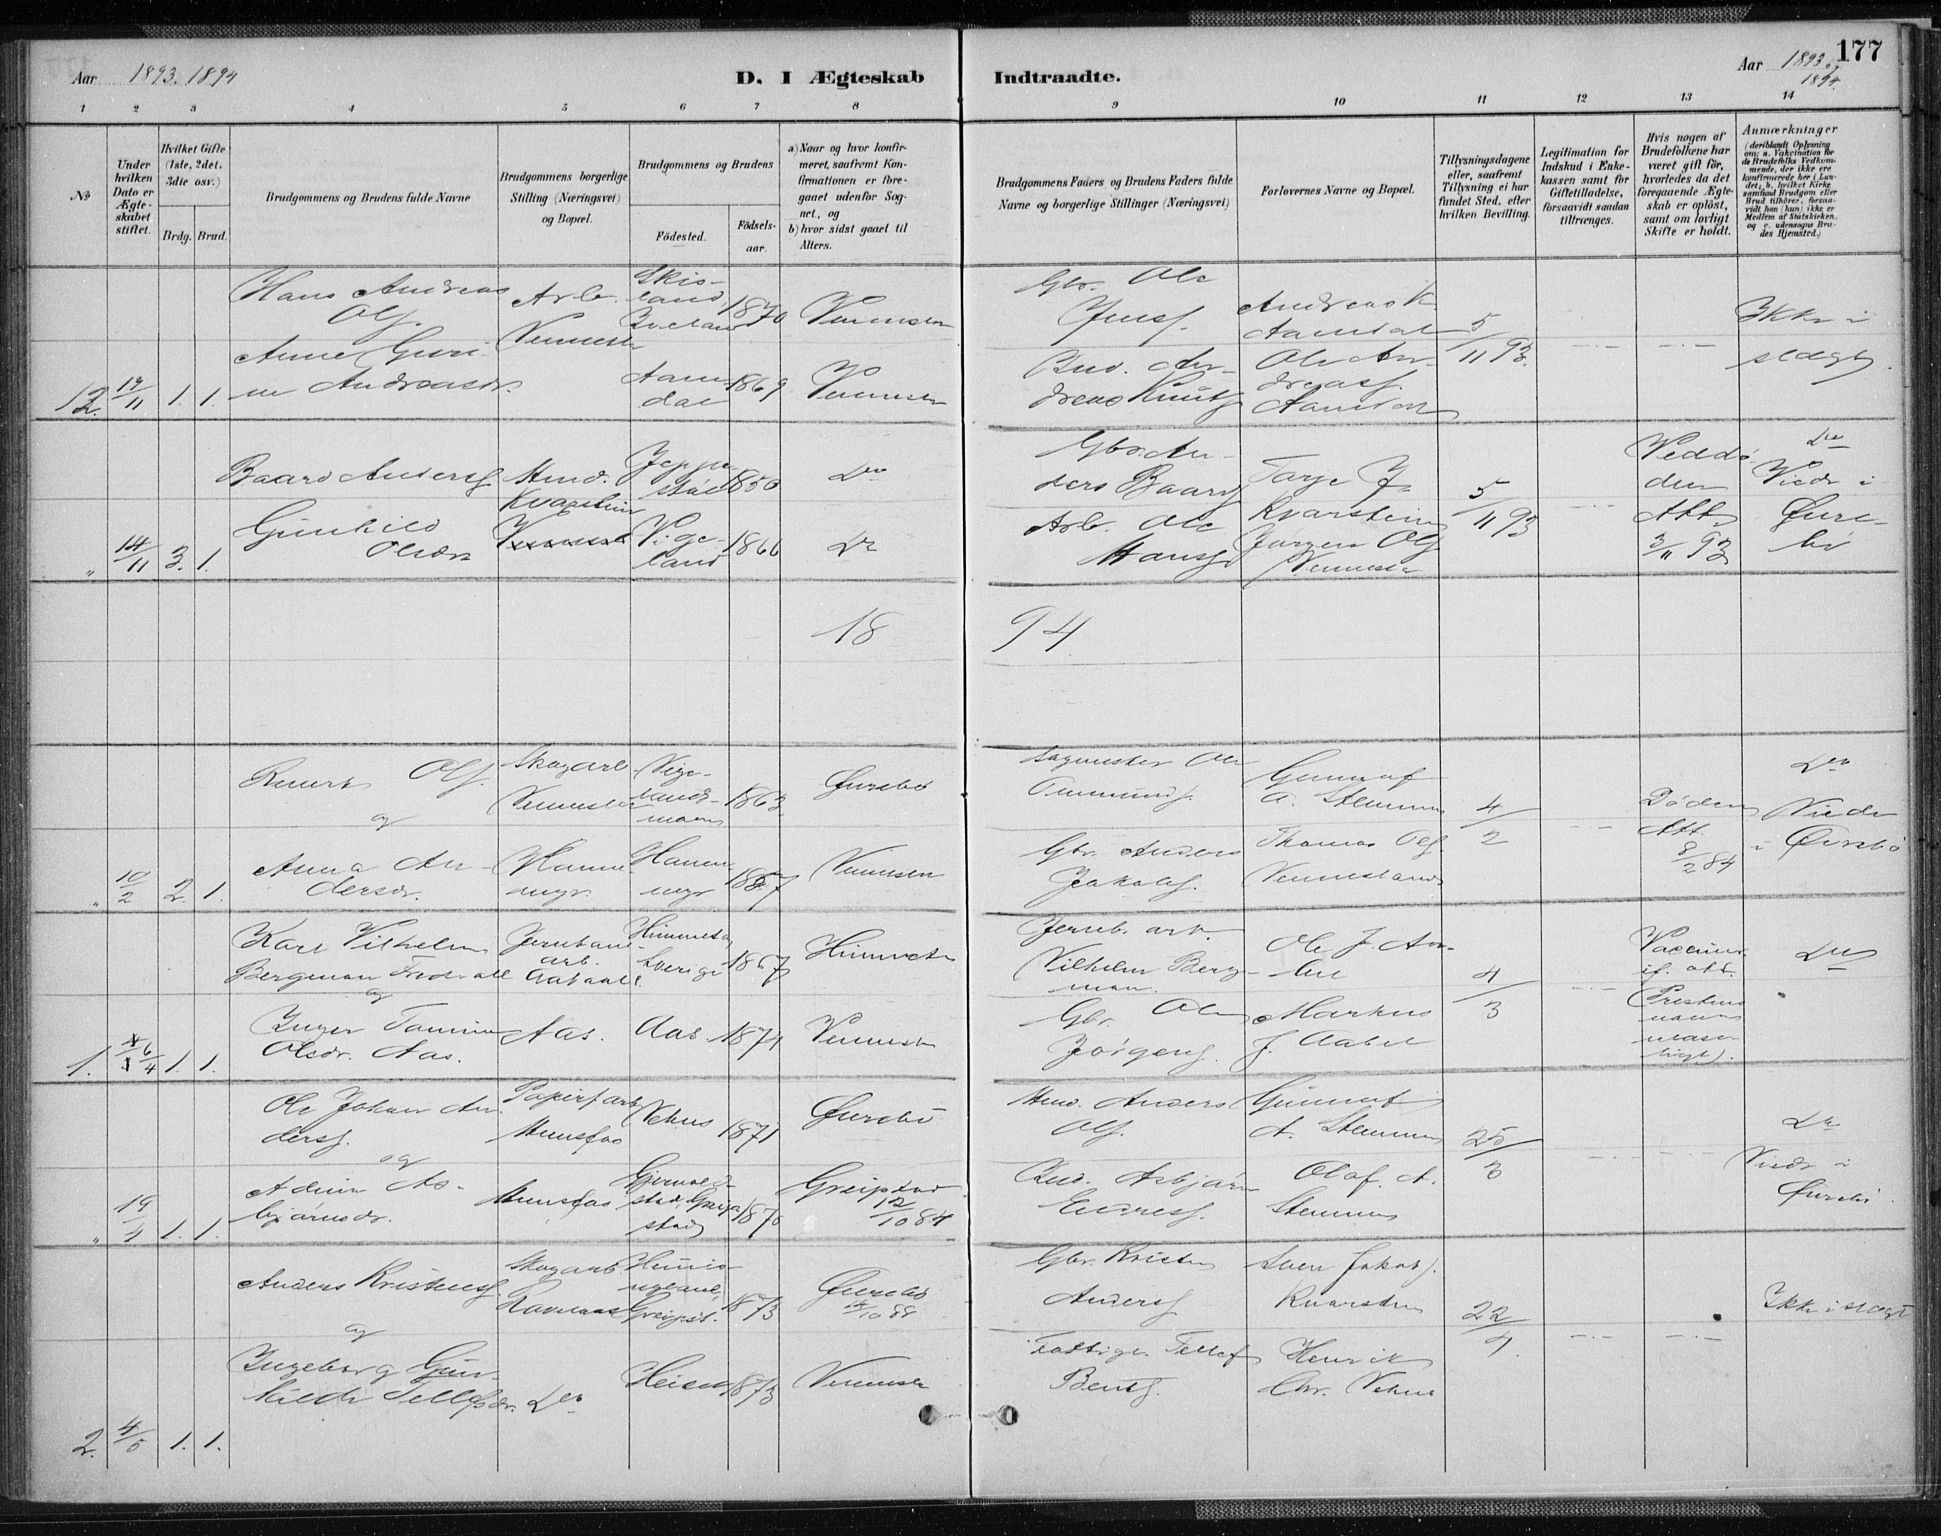 Aar 1893. 1894
D. I Ægteskab
Indtraadte.
Aar 1893 og 1894.
177
1 2 3 4 5 6 7 8
9 10 11 12 13 14
No
Under hvilken Dato er Ægteskabet stiftet.
Hvilket Gifte (1ste, 2det, 3die osv.)
Brdg. Brud.
Brudgommens og Brudens fulde Navne
Brudgommens borgerlige Stilling (Næringsvei) og Bopæl.
Brudgommens og Brudens
Fødested.
Fødselsaar.
a) Naar og hvor konfirmeret, saafremt Konfirmationen er foregaaet udenfor Sognet, og
b) hvor sidst gaaet til Alters.
Brudgommens Faders og Brudens Faders fulde Navne og borgerlige Stillinger (Næringsvei)
Forlovernes Navne og Bopæl.
Tillysningsdagene eller, saafremt Tillysning ei har fundet Sted, efter hvilken Bevilling.
Legitimation for Indskud i Enkekassen samt for Giftetilladelse, forsaavidt saadan tiltrænges.
Hvis nogen af Brudefolkene har været gift før, hvorledes da det foregaaende Ægteskab er opløst, samt om lovligt Skifte er holdt.
Anmærkninger (deriblandt Oplysning om: a. Vakcination for de Brudefolks Vedkommende, der ikke ere konfirmerede her i Landet; b. hvilket Kirkesamfund Brudgom eller Brud tilhører, forsaavidt han (hun) ikke er Medlem af Statskirken, og c. udensogns Brudes Hjemsted.)
Hans Andreas Arb. Skis-
Ols. Vennesla land, Iveland 1870 Vennesla
Gbr. Ole Jens. Andreas K. Aamdal 5/11 93. Ikke i slægt.
12. 17/11 1. 1. Anne Guri-
ne Andreasdr. Aamdal 1869 Vennesla
Ind. Andreas Knuts. Ole Andreas. Aamdal
Baard Anders. Hmd. Kvarstein Jeppestøl 1850 Do
Gbr. Anders Baards. Tarje J. Kvarstein 5/11 93 Ved døden Att. 3/11 93 Do Viede i Øvrebø
" 14/11 3. 1. Gunhild Olsdr. Vennesla Vigeland 1866 Do
Arb. Ole Hans. Jørgen Ols. Vennesla
18 94
Ols. Skogarb. Vennesla Vigelandsmoen 1863 Øvrebø
Sagmester Ole Ommunds. Gunnuf A. Stemmen 4/2 Døden Att. 8/2 84 Do Viede i Øvrebø
og
" 10/2 2. 1. Anna Andersdr. Hunnemyr. 1867 Vennesla
Gbr. Anders Jakobs. Thomas Ols. Vennesland
Karl Vilhelm Bergman Jernbanearb. Sverige 1867
Jernb. arb. Vilhelm Bergman. Ole J. 4/3 Vaccine if. att. (Prestens navn ulæseligt). Do
og
1. 6/4 1. 1. Inger Tomine Olsdr. Aas. Aas. Aas 1874 Vennesla
Gbr. Ole Jørgens. Markus J. Aabel
Ole Johan Anders. Papirfarb. Hunsfos Vehus 1871 Øvrebø
Hmd. Anders Ols. Gunnuf A. Stemmen 25/3 Do Viede i Øvrebø.
og
" 19/4 1. 1. Asbjørnsdr. Hunsfos Greipstad 1870 Greipstad 12/10 84
Ind. Asbjørn Endres. Olaf A. Stemmen
Anders Kristens. Skogarb. Ravnaas Greipst. 1873 Øvrebø 14/10 88
Gbr. Kristen Anders. Sven Jakobs. Kvarstein 22/4 Ikke i slægt
og
2. 4/5 1. 1. Ingeborg Gunhilde Tellefsdr. Do Heisel 1873 Vennesla
Fattige Tellef Bents. Henrik Chr. Vehus